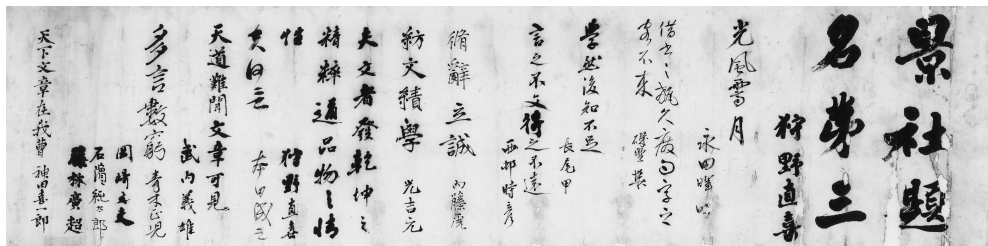 景社題
名第三
狩野直喜
光風霽月
永田暉明
借書一瓻久廢
字不来
學然後知不足
長尾甲
言之不文行之不遠
西邨時彦
脩辭立誠
内藤虎
紡文績學
光吉元
夫文者發乾坤之
精粹通品物之情
性
狩野直喜
本田成之
天道難聞文章可見
武内義雄
多言數窮
青木正児
岡崎文夫
石濱純太郎
藤林廣超
天下文章在我曹
神田喜一郎